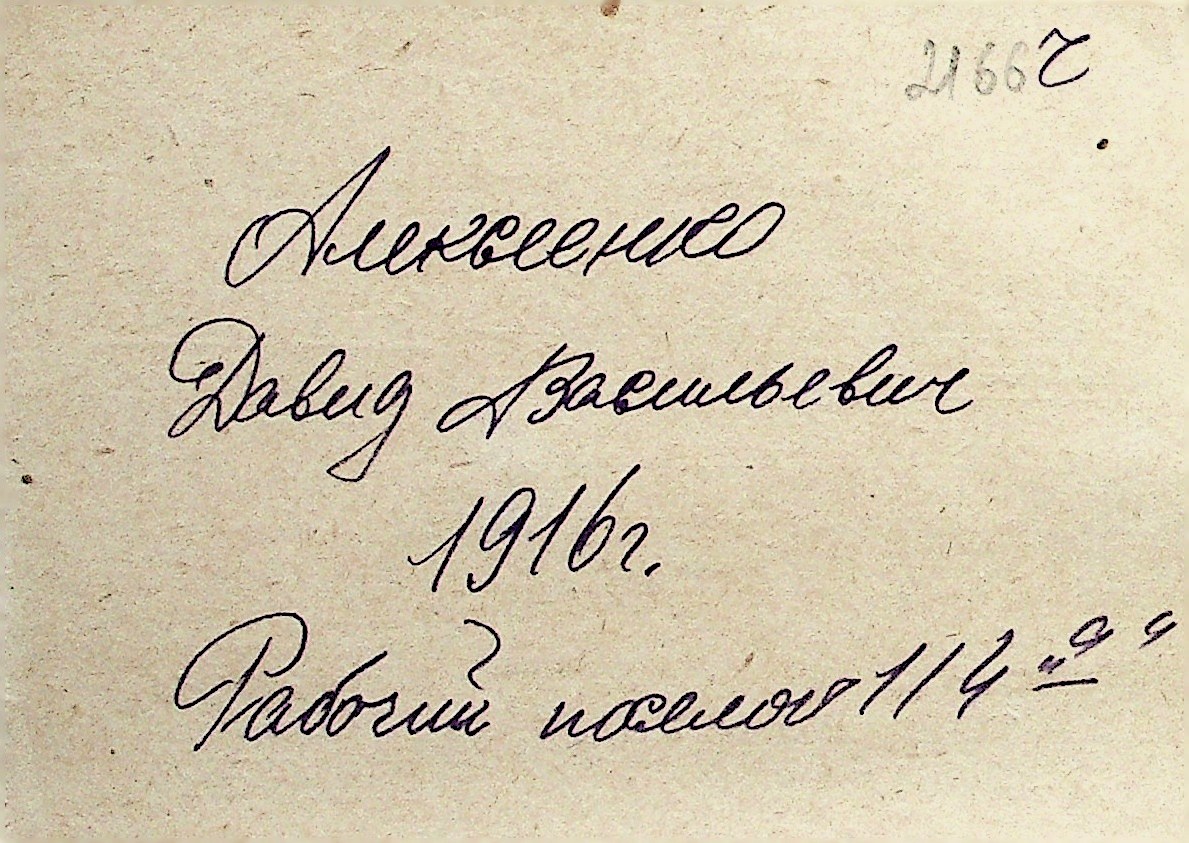 2166 ч
Алексеенко
Давид Васильевич
1916г.
Рабочий поселок 114 "а"